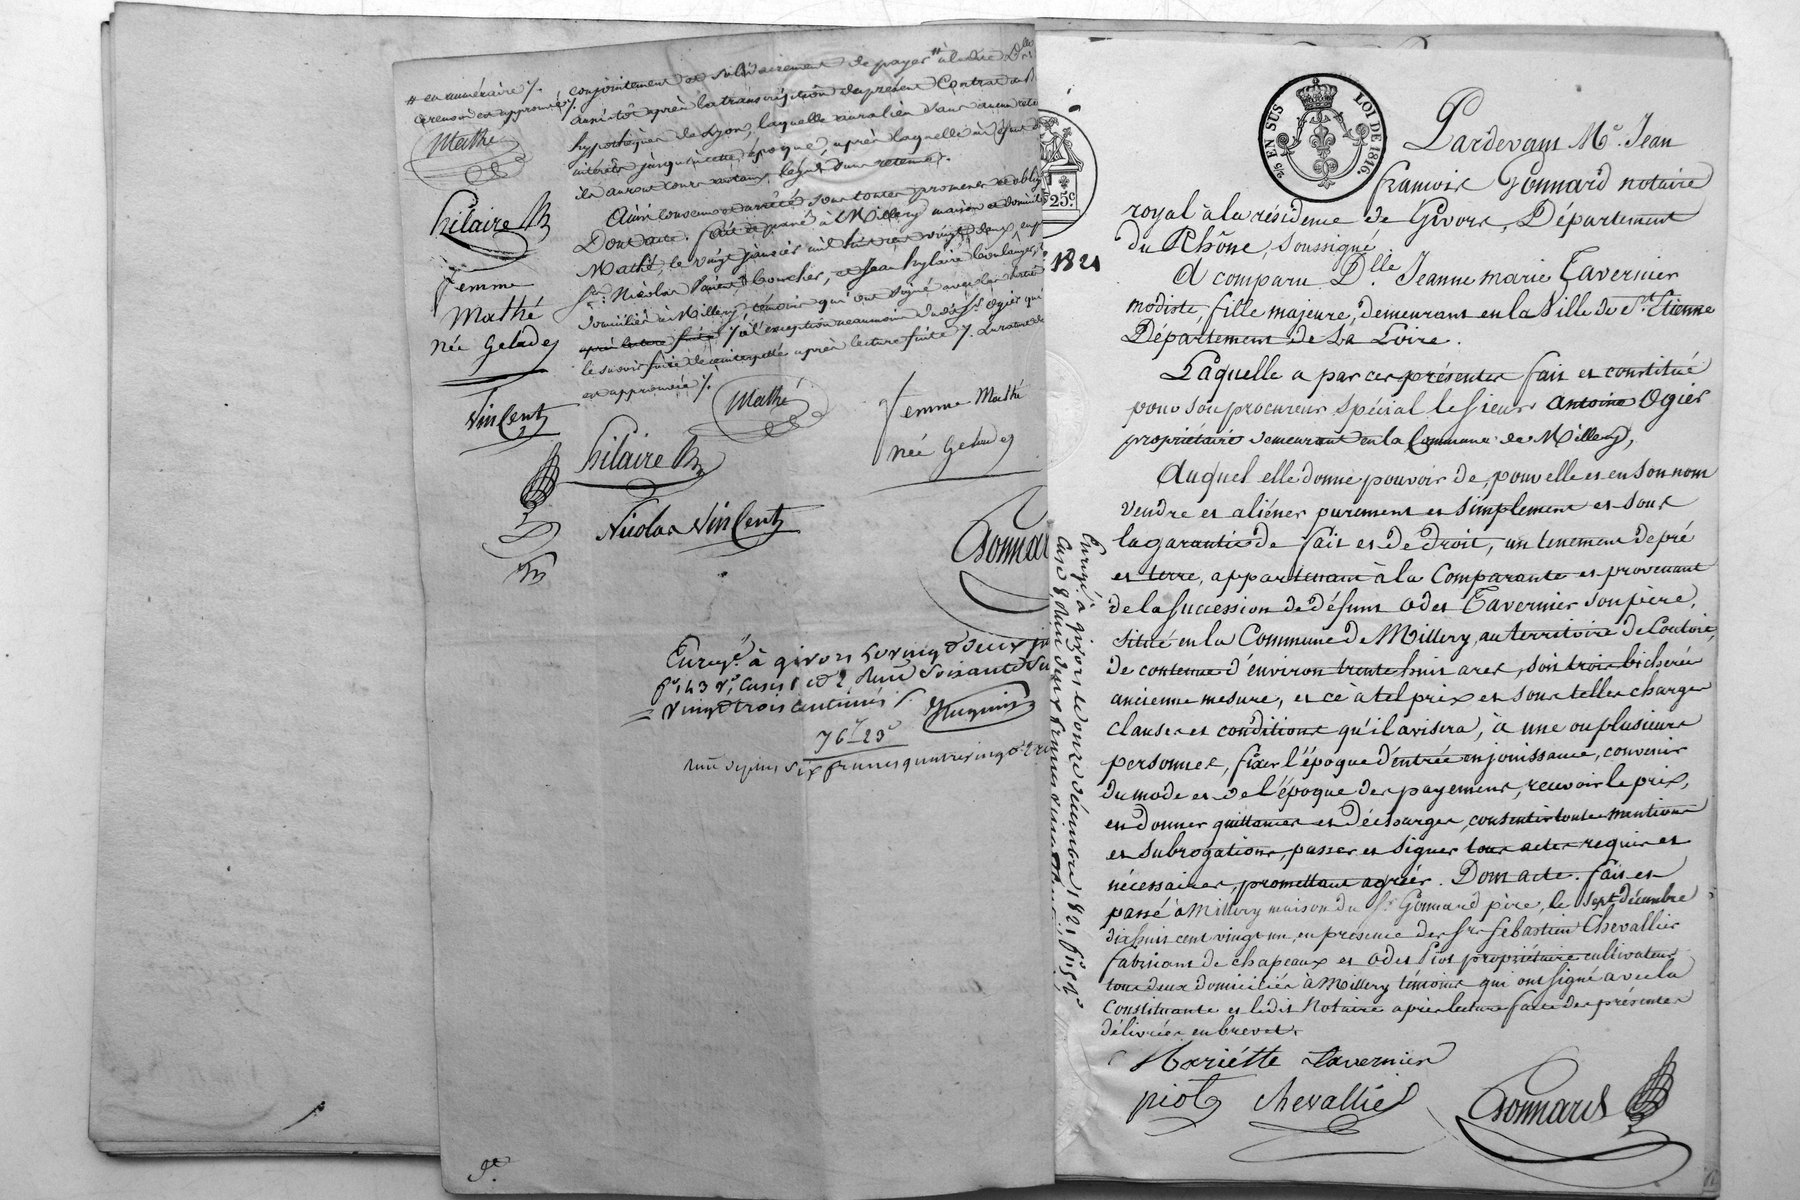 # en numéraire /.
ce renvoi est approuvé /.
Mathé
hilaire B
femme
Mathé
née Geladey
Vincent
conjointement et solidairement de payer # à ladite Dlle
aussitôt après la transcription du présent Contrat au
hypothèques de Lyon, laquelle aura lieu dans
intérêts jusqu'à cette époque, après laquelle
ils auront cours au taux légal sans retenue.
Ainsi convenu et arrêté sous toutes promesses et oblig
Dont acte. fait et passé à Millery maison et domicile
Mathé, le vingt janvier mil huit cent vingt deux, en
srs. Nicolas Vincent boucher, et Jean hylaire boulanger,
domiciliés à Millery, témoins qui ont signé avec les
après lecture faite / à l'exception néanmoins dudit Sr. Ogier qui
le savoir faire de ce interpellé après lecture faite /. La rature de
est approuvée /.
Mathé
femme Mathé
née Geladey
hilaire B
Nicolas Vincent
Gonnar
Enregé. à givors le vingt deux
fo. 143 vo. Cases 1 et 2 Reçu Soixante
vingt trois Centimes /.
76f 23c
Reçu depuis six francs quatre vingt
25c
1821
Enregé. à givors le onze décembre 1821 fo.
Case 8, Reçu deux francs vingt
25 EN SUS
LOI DE 1816.
Pardevant Me. Jean
françois Gonnard notaire
royal à la résidence de Givors, Département
du Rhône, soussigné
A comparu Dlle. Jeanne marie Tavernier
modiste, fille majeure, demeurant en la Ville de St. Etienne
Département de La Loire.
Laquelle a par ces présentes fait et constitué
pour son procureur spécial le sieur Antoine Ogier
propriétaire demeurant en la Commune de Millery,
Auquel elle donne pouvoir de, pour elle et en son nom
vendre et aliéner purement et simplement et sous
la garantie de fait et de droit, un tenement de pré
et terre, appartenant à la Comparante et provenant
de la succession de défunt Odet Tavernier son père,
situé en la Commune de Millery, au territoire de Coutoire,
de contenue d'environ trente huit ares, soit trois bicherées
ancienne mesure, et ce à tel prix et sous telles charges
clauses et conditions qu'il avisera, à une ou plusieurs
personnes, fixer l'époque d'entrée en jouissance, convenir
du mode et de l'époque des payemens, recevoir le prix,
en donner quittances et décharges, consentir toutes mentions
et subrogations, passer et signer tous actes requis et
nécessaires, promettant agréer. Dont acte. fait et
passé à Millery maison du Sr. Gonnard père, le sept décembre
dix huit cent vingt un, en présence des srs Sébastien Chevallier
fabricant de chapeaux et Odet Piot propriétaire cultivateur
tous deux domiciliés à Millery témoins qui ont signé avec la
Constituante et ledit Notaire après lecture faite des présentes
délivrées en brevet.
Mariétte Tavernier
piot Chevallié Gonnard